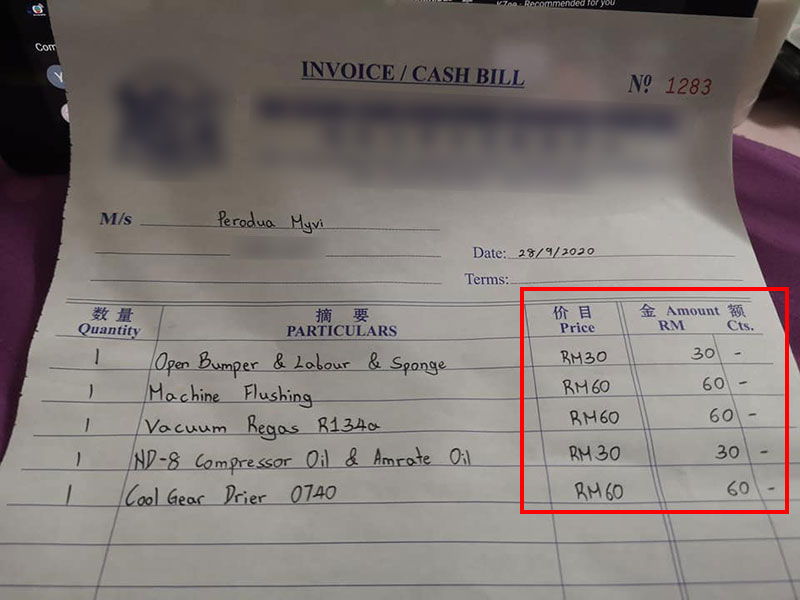 KZee · Recommended for you
Com
Y
INVOICE / CASH BILL
Nº 1283
M/s Perodua Myvi
Date: 28/9/2020
Terms:
数量 摘要 价目 金 Amount 额
Quantity PARTICULARS Price RM Cts.
1 Open Bumper & Labour & Sponge RM30 30 -
1 Machine Flushing RM60 60 -
1 Vacuum Regas R134a RM60 60 -
1 ND-8 Compressor Oil & Amrate Oil RM30 30 -
1 Cool Gear Drier 0740 RM60 60 -